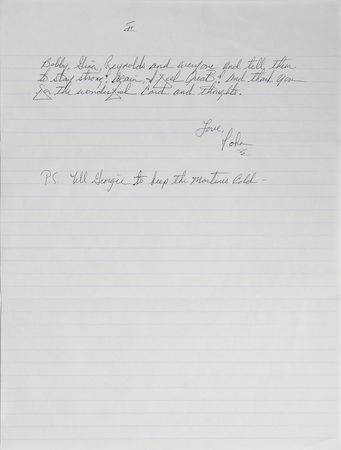 III
Bobby, Gina, Reynolds and everyone and tell them
to stay strong! Again, I feel Great! And thank you
for the wonderful Card and thoughts.
Love,
John
P.S. Tell Georgie to keep the Martinis Cold -